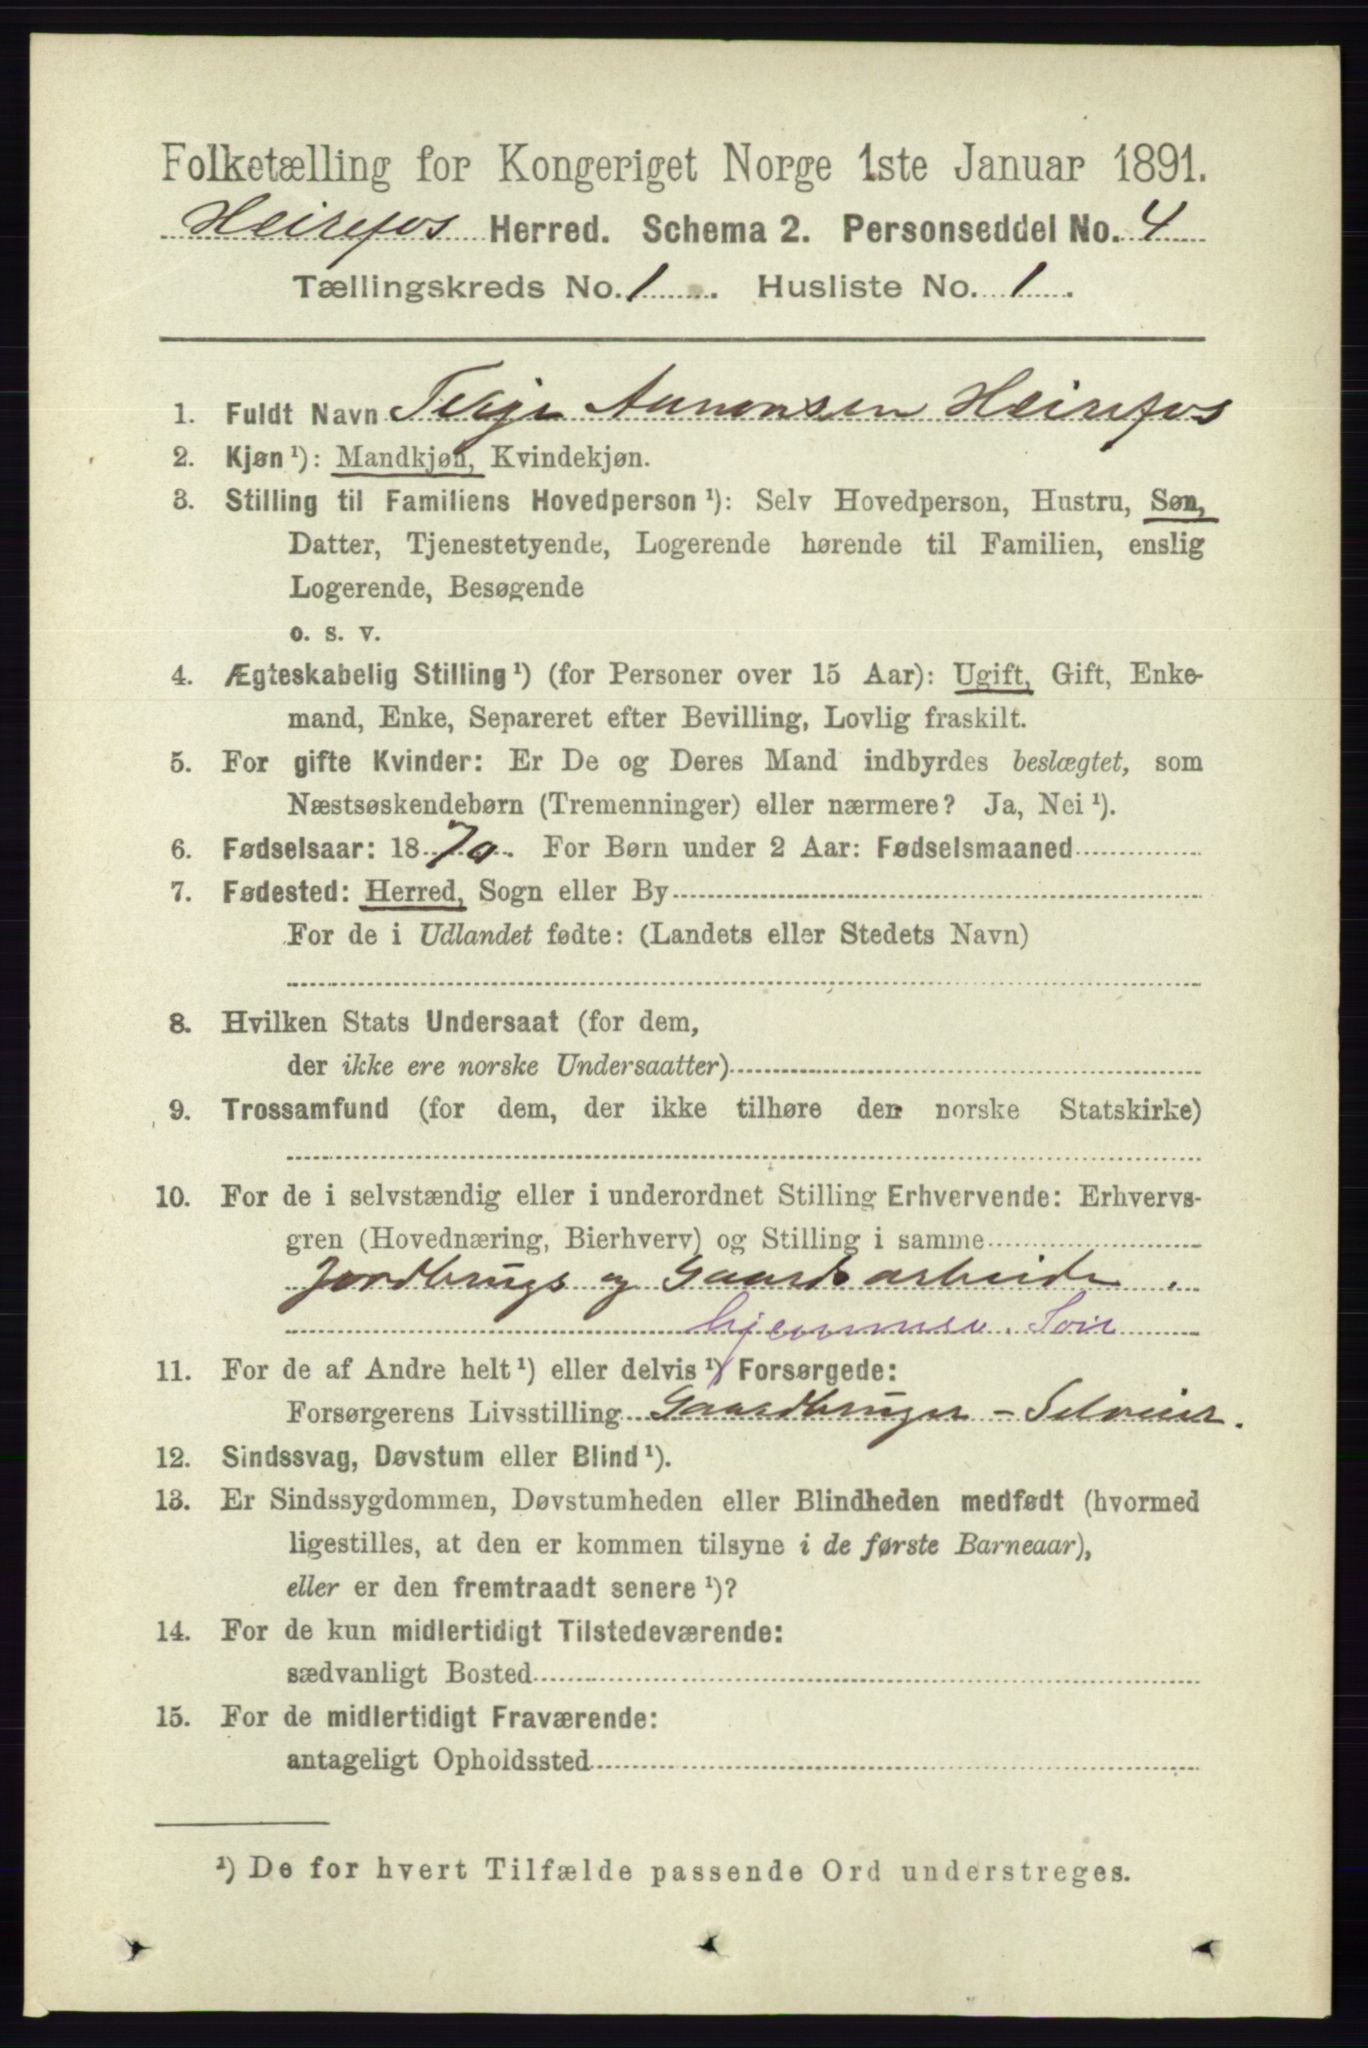 Folketælling for Kongeriget Norge 1ste Januar 1891.
Heirefos Herred. Schema 2. Personseddel No. 4
Tællingskreds No. 1. Husliste No. 1.
1. Fuldt Navn Terje Aanonsen Heirefos
2. Kjøn ¹): Mandkjøn, Kvindekjøn.
3. Stilling til Familiens Hovedperson ¹): Selv Hovedperson, Hustru, Søn,
Datter, Tjenestetyende, Logerende hørende til Familien, enslig
Logerende, Besøgende
o. s. v.
4. Ægteskabelig Stilling ¹) (for Personer over 15 Aar): Ugift, Gift, Enke-
mand, Enke, Separeret efter Bevilling, Lovlig fraskilt.
5. For gifte Kvinder: Er De og Deres Mand indbyrdes beslægtet, som
Næstsøskendebørn (Tremenninger) eller nærmere? Ja, Nei ¹).
6. Fødselsaar: 1870. For Børn under 2 Aar: Fødselsmaaned
7. Fødested: Herred, Sogn eller By
For de i Udlandet fødte: (Landets eller Stedets Navn)
8. Hvilken Stats Undersaat (for dem,
der ikke ere norske Undersaatter)
9. Trossamfund (for dem, der ikke tilhøre den norske Statskirke)
10. For de i selvstændig eller i underordnet Stilling Erhvervende: Erhvervs-
gren (Hovednæring, Bierhverv) og Stilling i samme
Jordbrugs og Gaardsarbeide.
hjemmev. Søn
11. For de af Andre helt ¹) eller delvis ¹) Forsørgede:
Forsørgerens Livsstilling Gaardbruger - Selveier.
12. Sindssvag, Døvstum eller Blind ¹).
13. Er Sindssygdommen, Døvstumheden eller Blindheden medfødt (hvormed
ligestilles, at den er kommen tilsyne i de første Barneaar),
eller er den fremtraadt senere ¹)?
14. For de kun midlertidigt Tilstedeværende:
sædvanligt Bosted
15. For de midlertidigt Fraværende:
antageligt Opholdssted
¹) De for hvert Tilfælde passende Ord understreges.